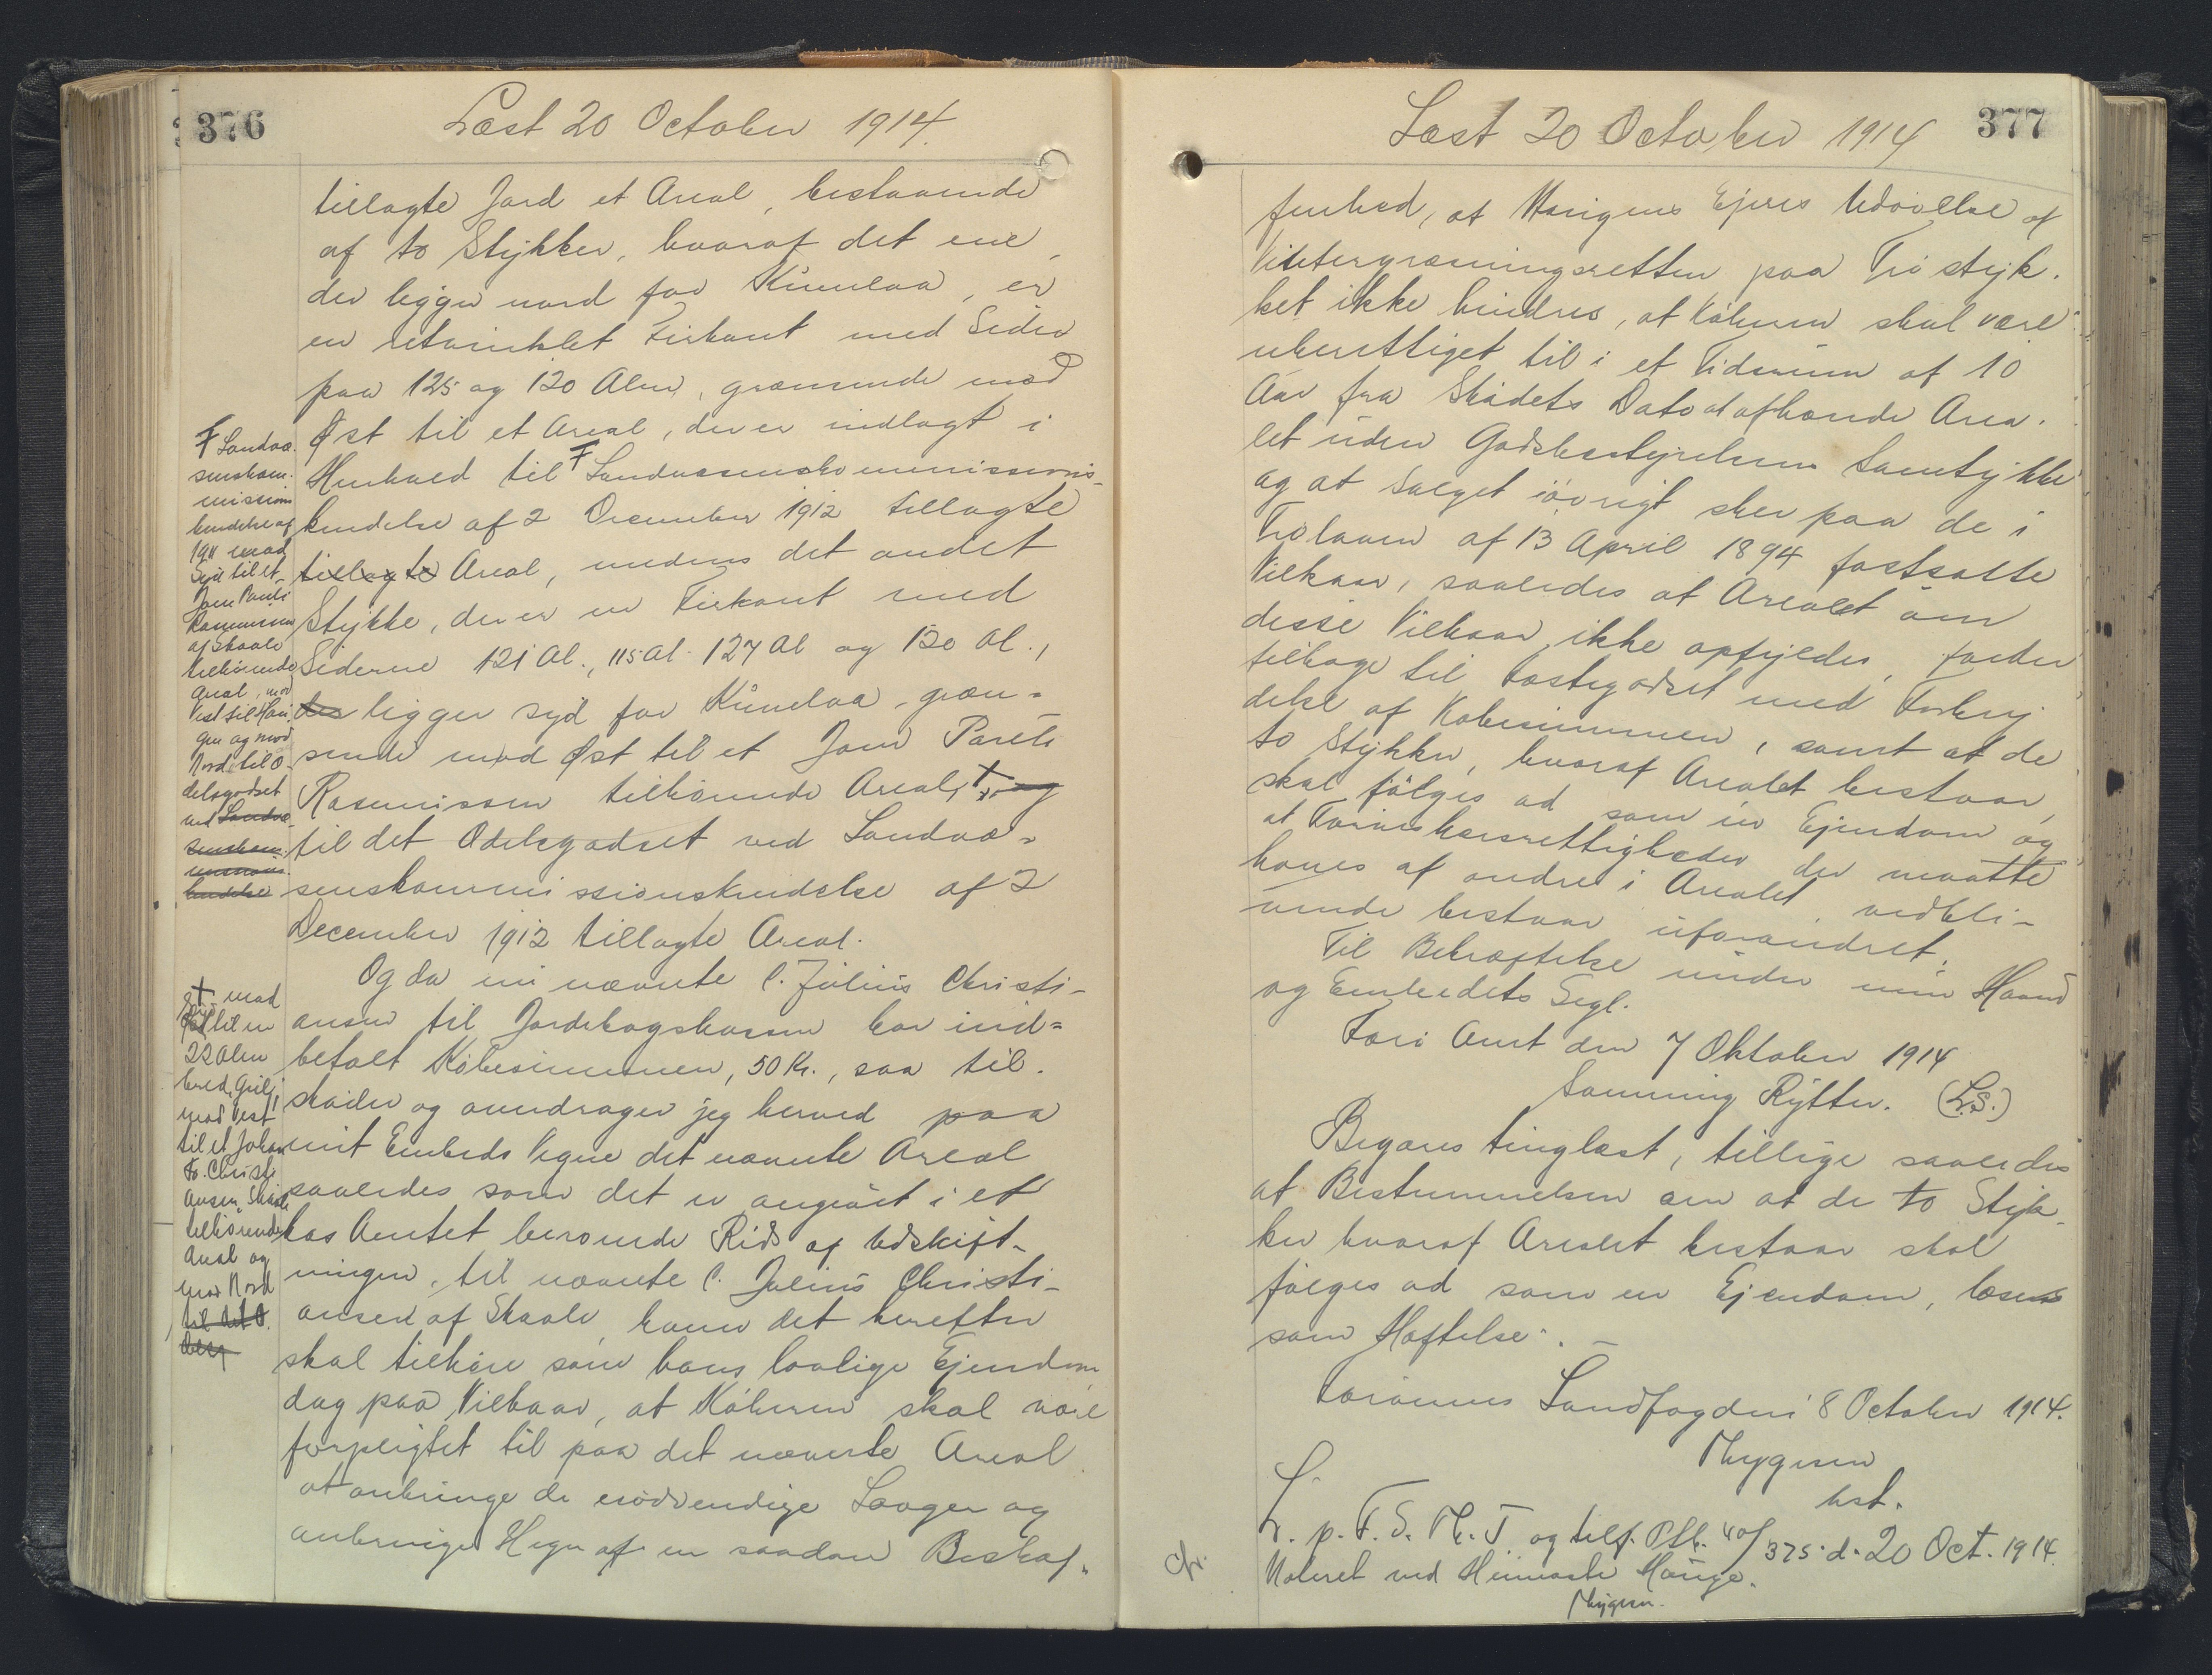 376
Læst 20 October 1914.
tillagte Jord et Areal, bestaaende
af to Stykker, hvoraf det ene,
der ligger nord for Kunelaa, er
en retvinklet Firkant med Sider
paa 125 og 120 Alen, grænsende mod
Øst til et Areal, der er indlagt i
Henhold til F Landvæsenskommissions-
kendelse af 2 December 1912 tillagte
tillagte Areal, medens det andet
Stykke, der er en Firkant med
Siderne 121 Al., 115 Al. 127 Al og 120 Al.,
der ligger syd for Kunelaa, græn=
sende mod Øst til et Joen Pauli
Rasmussen tilhørende Areal, + og
til det Odelsgodset ved Landvæ=
senskommissionskendelse af 2
December 1912 tillagte Areal.
Og da nu nævnte C. Julius Christi-
ansen til Jordebogskassen har ind=
betalt Købesummen, 50 Kr., saa til-
skøder og overdrager jeg herved paa
mit Embeds Vegne det nævnte Areal
saaledes som det er angivet i et
hos Amtet beroende Rids af Udskift-
ningen, til nævnte C. Julius Christi-
ansen af Skaale, hvem det herefter
skal tilhøre som hans lovlige Ejendom
dog paa Vilkaar, at Køberen skal være
forpligtet til paa det nævnte Areal
at anbringe de nødvendige Laager og
anbringe Hegn af en saadan Beskaf-
F Landvæ-
senskom-
missions
kendelse af
1911 mod
Syd til et
Joen Pauli
Rasmussen
af Skaale
tilhørende
Areal, mod
Vest til Hau-
gen og mod
Nord til O-
delsgodset
ved Landvæ-
senskom-
missions-
kendelse
+ mod
Syd til en
22 Alen
bred Geil,
mod Vest
til et Johan
Fr. Christi-
ansen, Skaale
tilhørende
Areal og
mod Nord
til det O-
dels
377
Læst 20 October 1914
fenhed, at Haugens Ejeres Udøvelse af
Vintergræsningsretten paa Trøstyk-
ket ikke hindres, at Køberen skal være
uberettiget til i et Tidsrum af 10
Aar fra Skødets Dato at afhænde Area-
let uden Godsbestyrelsens Samtykke
og at Salget iøvrigt sker paa de i
Trøloven af 13 April 1894 fastsatte
Vilkaar, saaledes at Arealet om
disse Vilkaar ikke opfyldes, falder
tilbage til Fæstegodset med Forbry-
delse af Købesummen, samt at de
to Stykker, hvoraf Arealet bestaar,
skal følges ad som én Ejendom og
at Færdselsrettigheder der maatte
haves af andre i Arealet, vedbli-
vende bestaar uforandret.
Til Bekræftelse under min Haand
og Embedets Segl.
Færø Amt den 7 Oktober 1914
Svenning Rytter. (L.S.)
Begæres tinglæst, tillige saaledes
at Bestemmelsen om at de to Styk-
ker hvoraf Arealet bestaar skal
følges ad som en Ejendom, læses
som Hæftelse. -
Færøernes Landfogderi 8 October 1914.
Thygesen
kst.
L. p. F. S. Th. T. og tilf. Ptk. 40/375 d. 20 Oct. 1914.
Noteret ved Heimaste Hauge.
Thygesen.